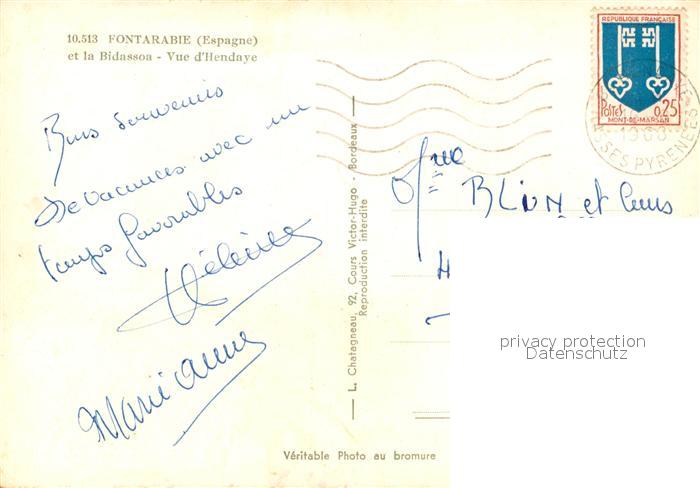 10.513 FONTARABIE (Espagne)
et la Bidassoa - Vue d'Hendaye
REPUBLIQUE FRANÇAISE
Postes 0,25
MONT-DE-MARSAN
SSES PYRENEES
Bons souvenirs
de vacances avec un
temps favorables
Hélène
Marie Anne
L. Chatagneau, 92, Cours Victor-Hugo - Bordeaux
Reproduction interdite
BLION et
privacy protection
Datenschutz
Véritable Photo au bromure